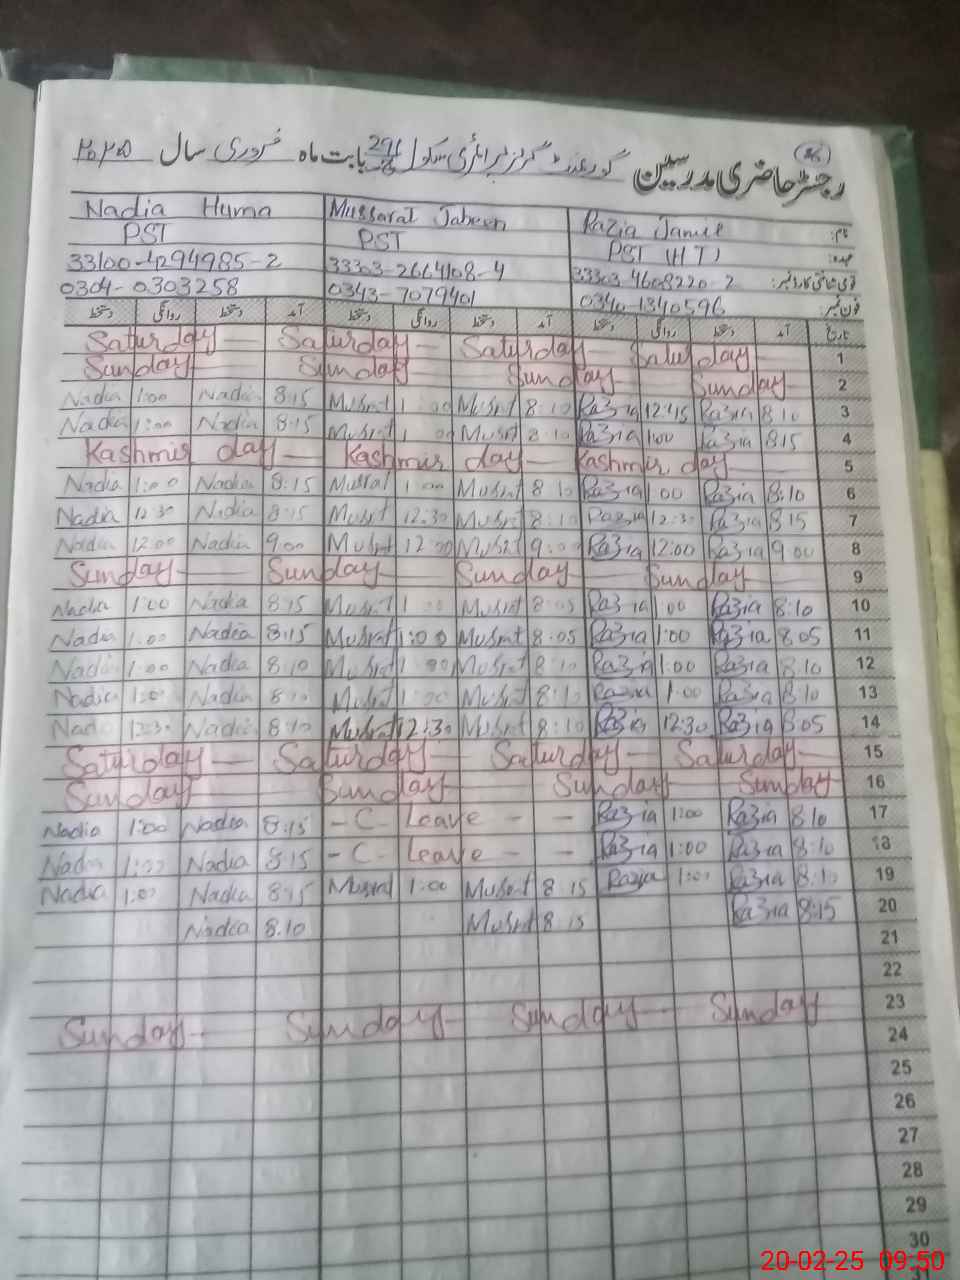 (36)
رجسٹر حاضری مدرسین گورنمنٹ گرلز پرائمری سکول 296 بابت ماہ فروری سال ۲۰۲۵
نام: Razia Jamil Mussarat Jabeen Nadia Huma
عہدہ: PST (HT) PST PST
قومی شناختی کارڈ نمبر: 33303-4608220-2 33303-2664108-4 33100-4294985-2
فون نمبر: 0340-1340596 0343-7079401 0304-0303258
تاریخ آمد دستخط روانگی دستخط آمد دستخط روانگی دستخط آمد دستخط روانگی دستخط
Saturday Saturday Saturday Saturday 1
Sunday Sunday Sunday Sunday 2
Nadia 1:00 Nadia 8:15 Musrat 1:00 Musrat 8:10 Razia 12:45 Razia 8:10 3
Nadia 1:00 Nadia 8:15 Musrat 1:00 Musrat 8:10 Razia 1:00 Razia 8:15 4
Kashmir day Kashmir day Kashmir day 5
Nadia 1:00 Nadia 8:15 Musrat 1:00 Musrat 8:10 Razia 1:00 Razia 8:10 6
Nadia 12:30 Nadia 8:15 Musrat 12:30 Musrat 8:10 Razia 12:30 Razia 8:15 7
Nadia 12:00 Nadia 9:00 Musrat 12:00 Musrat 9:00 Razia 12:00 Razia 9:00 8
Sunday Sunday Sunday Sunday 9
Nadia 1:00 Nadia 8:15 Musrat 1:00 Musrat 8:05 Razia 1:00 Razia 8:10 10
Nadia 1:00 Nadia 8:15 Musrat 1:00 Musrat 8:05 Razia 1:00 Razia 8:05 11
Nadia 1:00 Nadia 8:10 Musrat 1:00 Musrat 8:10 Razia 1:00 Razia 8:10 12
Nadia 1:00 Nadia 8:10 Musrat 1:00 Musrat 8:10 Razia 1:00 Razia 8:10 13
Nadia 12:30 Nadia 8:10 Musrat 12:30 Musrat 8:10 Razia 12:30 Razia 8:05 14
Saturday Saturday Saturday Saturday 15
Sunday Sunday Sunday Sunday 16
Nadia 1:00 Nadia 8:15 - C - Leave - - Razia 1:00 Razia 8:10 17
Nadia 1:00 Nadia 8:15 - C - Leave - - Razia 1:00 Razia 8:10 18
Nadia 1:00 Nadia 8:15 Musrat 1:00 Musrat 8:15 Razia 1:00 Razia 8:10 19
Nadia 8:10 Musrat 8:15 Razia 8:15 20
21
22
Sunday Sunday Sunday Sunday 23
24
25
26
27
28
29
30
20-02-25 09:50